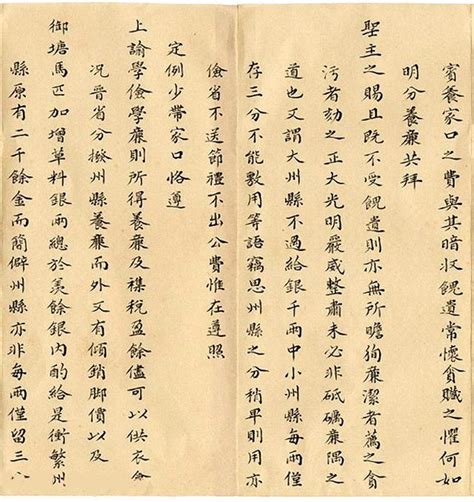 賓養家口之費與其暗収餽遺常懷貪贓之懼何如
明分養廉共拜
聖主之賜且既不受餽遺則亦無所瞻狥廉潔者薦之貪
污者劾之正大光明嚴威整肅未必非砥礪廉隅之
道也又謂大州縣不過給銀千兩中小州縣每兩僅
存三分不能敷用等語竊思州縣之分稍卑則用亦
儉省不送節禮不出公費惟在遵照
定例少帶家口恪遵
上諭學儉學廉則所得養廉及襍稅盈餘儘可以供衣食
况晉省分撥州縣養廉而外又有傾銷脚價以及
御塘馬匹加增草料銀兩總於羡餘銀内酌給是衝繁州
縣原有二千餘金而簡僻州縣亦非每兩僅留三八